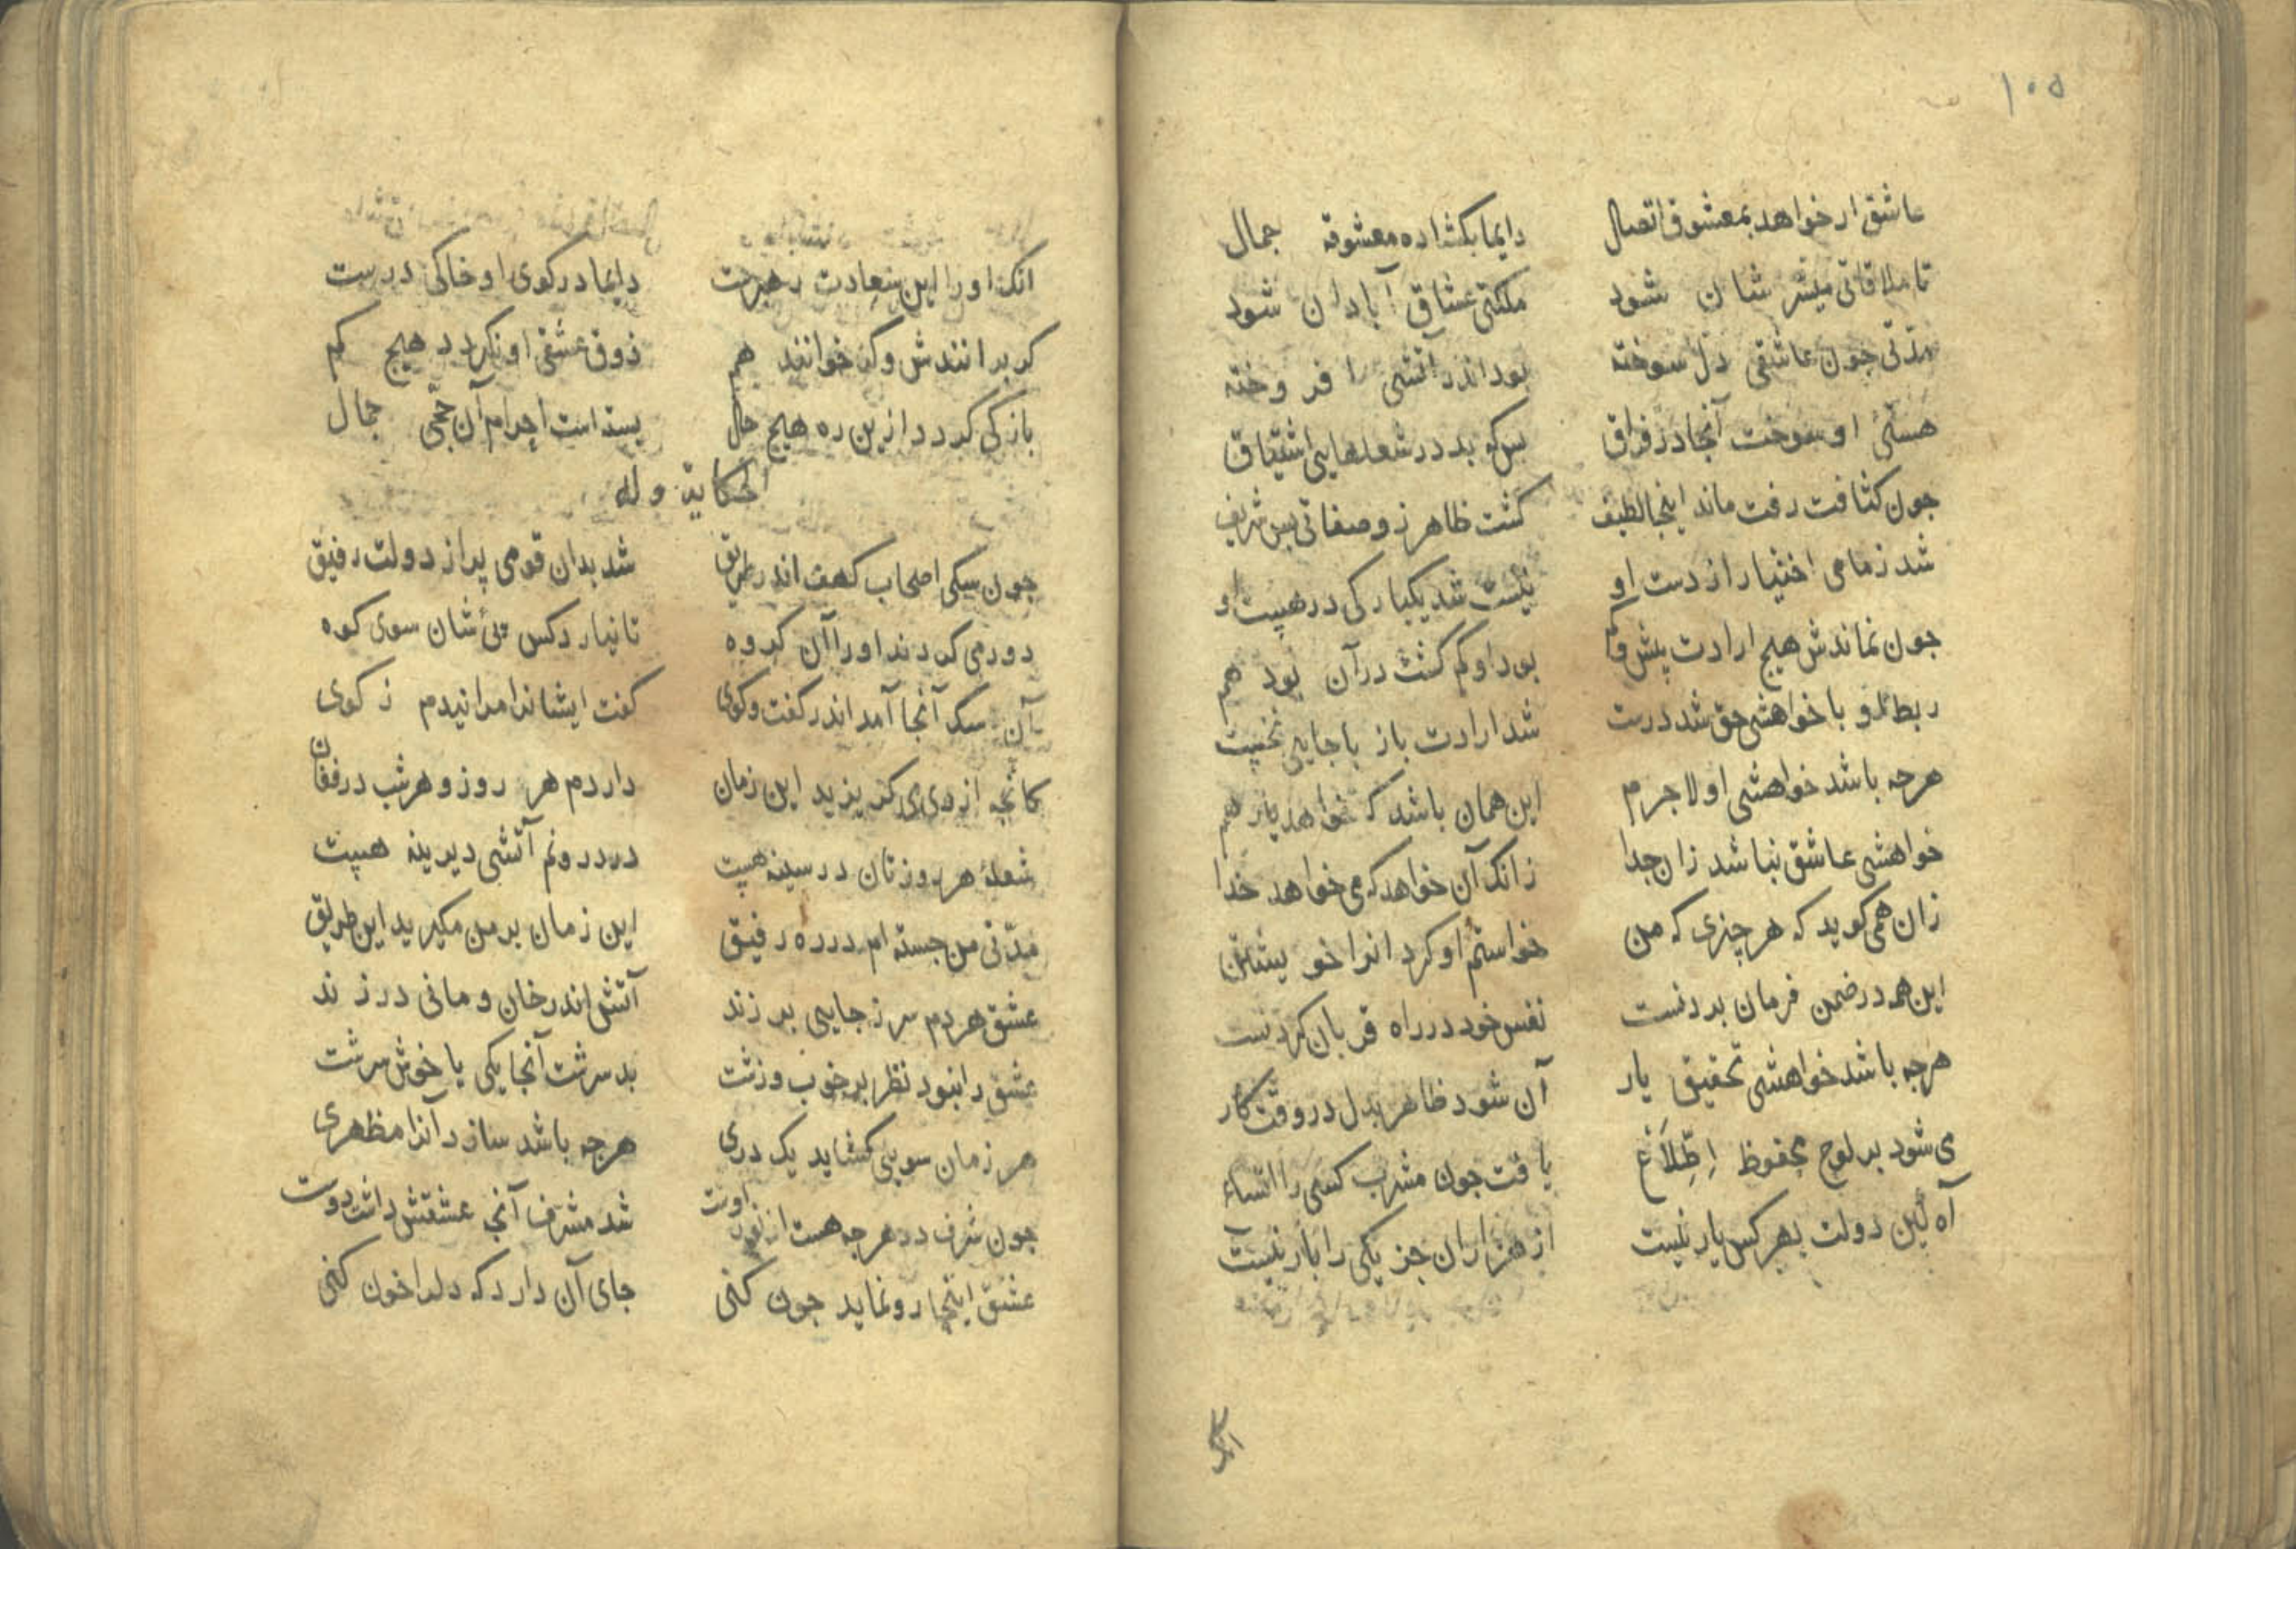 ۱۰۵
عاشق ار خواهد بمعشوق اتصال دایما بکشاده معشوقه جمال
تا ملاقاتی میسر شان شود ملکتی عشاق آبادان شود
مدتی جون عاشقی دل سوخته بود اندر آتشی افروخته
هستئ او سوخت آنجا در فراق بس که بد در شعلهایی اشتیاق
جون کثافت رفت ماند اینجا لطیف کشت ظاهر زو صفاتی بس شریف
شد زمامی اختیار از دست او نیست شد یکبارکی در هست او
جون نماندش هیج ارادت بیش و کم بود او کم کشت در آن بود هم
ربط او با خواهشی حق شد درست شد ارادت باز با جایی نخست
هرجه باشد خواهشی او لاجرم این همان باشد که خواهد یار هم
خواهشی عاشق نباشد زان جدا زانک آن خواهد که می خواهد خدا
زان همی کوید که هر چیزی که من خواستم او کرد انرا خویشتن
این همه در ضمن فرمان بردنست نفس خود در راه قربان کردنست
هرجه باشد خواهشی تحقیق یار آن شود ظاهر بدل در وقت کار
می شود بر لوح محفوظ اِطِّلاَعْ یافت جون مشرب کسی را
آه این دولت بهر کس یار نیست از هزاران جز یکی را بار نیست
انک
انک او را این سعادت رهبرست دایما در کوی او خاکی درست
کر برانندش وکر خوانند هم ذوق عشقی او نکردد هیج کم
باز کی کردد ازین ره هیج حال بسته است احرام آن حجی جمال
حکایة وله
جون سکی اصحاب کهف اندر طریق شد بدان قومی پر از دولت رفیق
دور می کردند اورا آن کروه تا نیارد کس پئ شان سوی کوه
آن سک آنجا آمد اندر کفت وکوی کفت ایشانرا مرانیدم زکوی
کانجه از وی می کریزید این زمان داردم هر روز و هر شب در فغان
شعلهٔ هر روزتان در سینه هست در درونم آتشی دیرینه هست
مدتی من جسته ام در ره رفیق این زمان بر من مکیرید این طریق
عشق هردم سر ز جایی بر زند آتش اندر خان و مانی در زند
عشق را نبود نظر بر خوب وزشت بد سرشت آنجا یکی با خوش سرشت
هر زمان سویی کشاید یک دری هرجه باشد سازد آنرا مظهری
جون شرف در هرجه هست از اوست شد مشرف آنج عشقش داشت دوست
عشق اینجا رو نماید جون کنی جای آن دارد که دلرا خون کنی